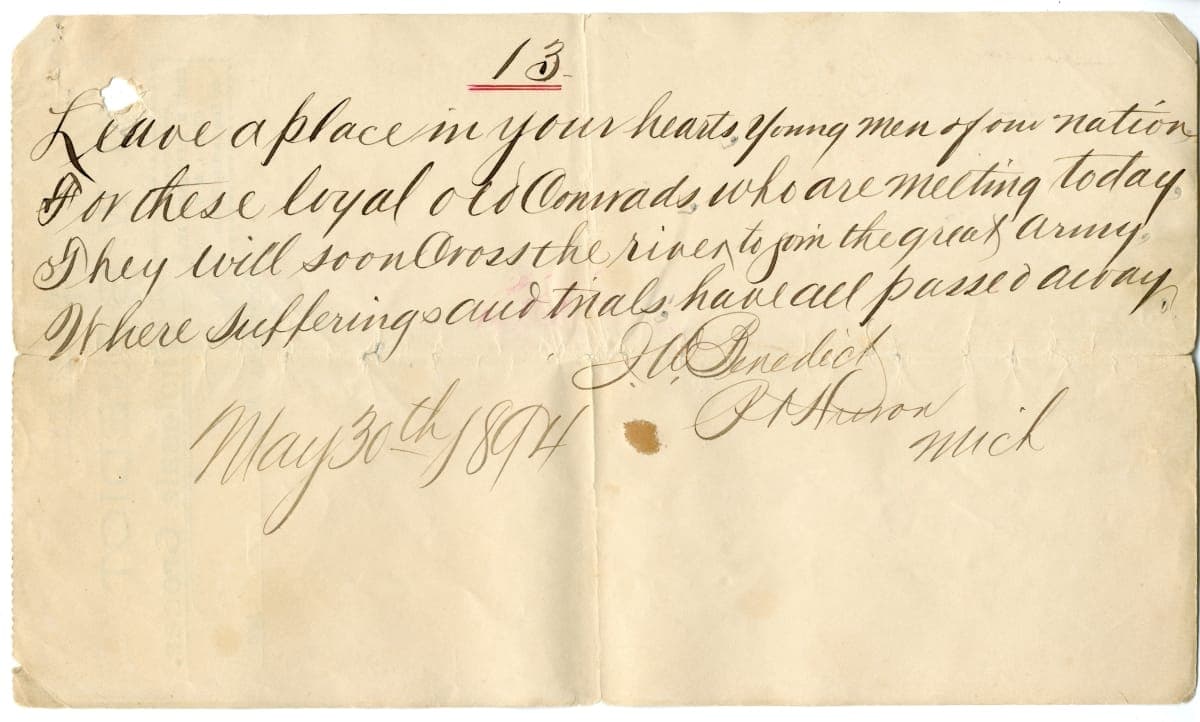 13
Leave a place in your hearts, young men of our nation
For these loyal old Comrads, who are meeting today,
They will soon Cross the river, to join the great army,
Where sufferings and trials, have all passed away.
J. W. Benedict
Pt Huron
Mich
May 30th 1894